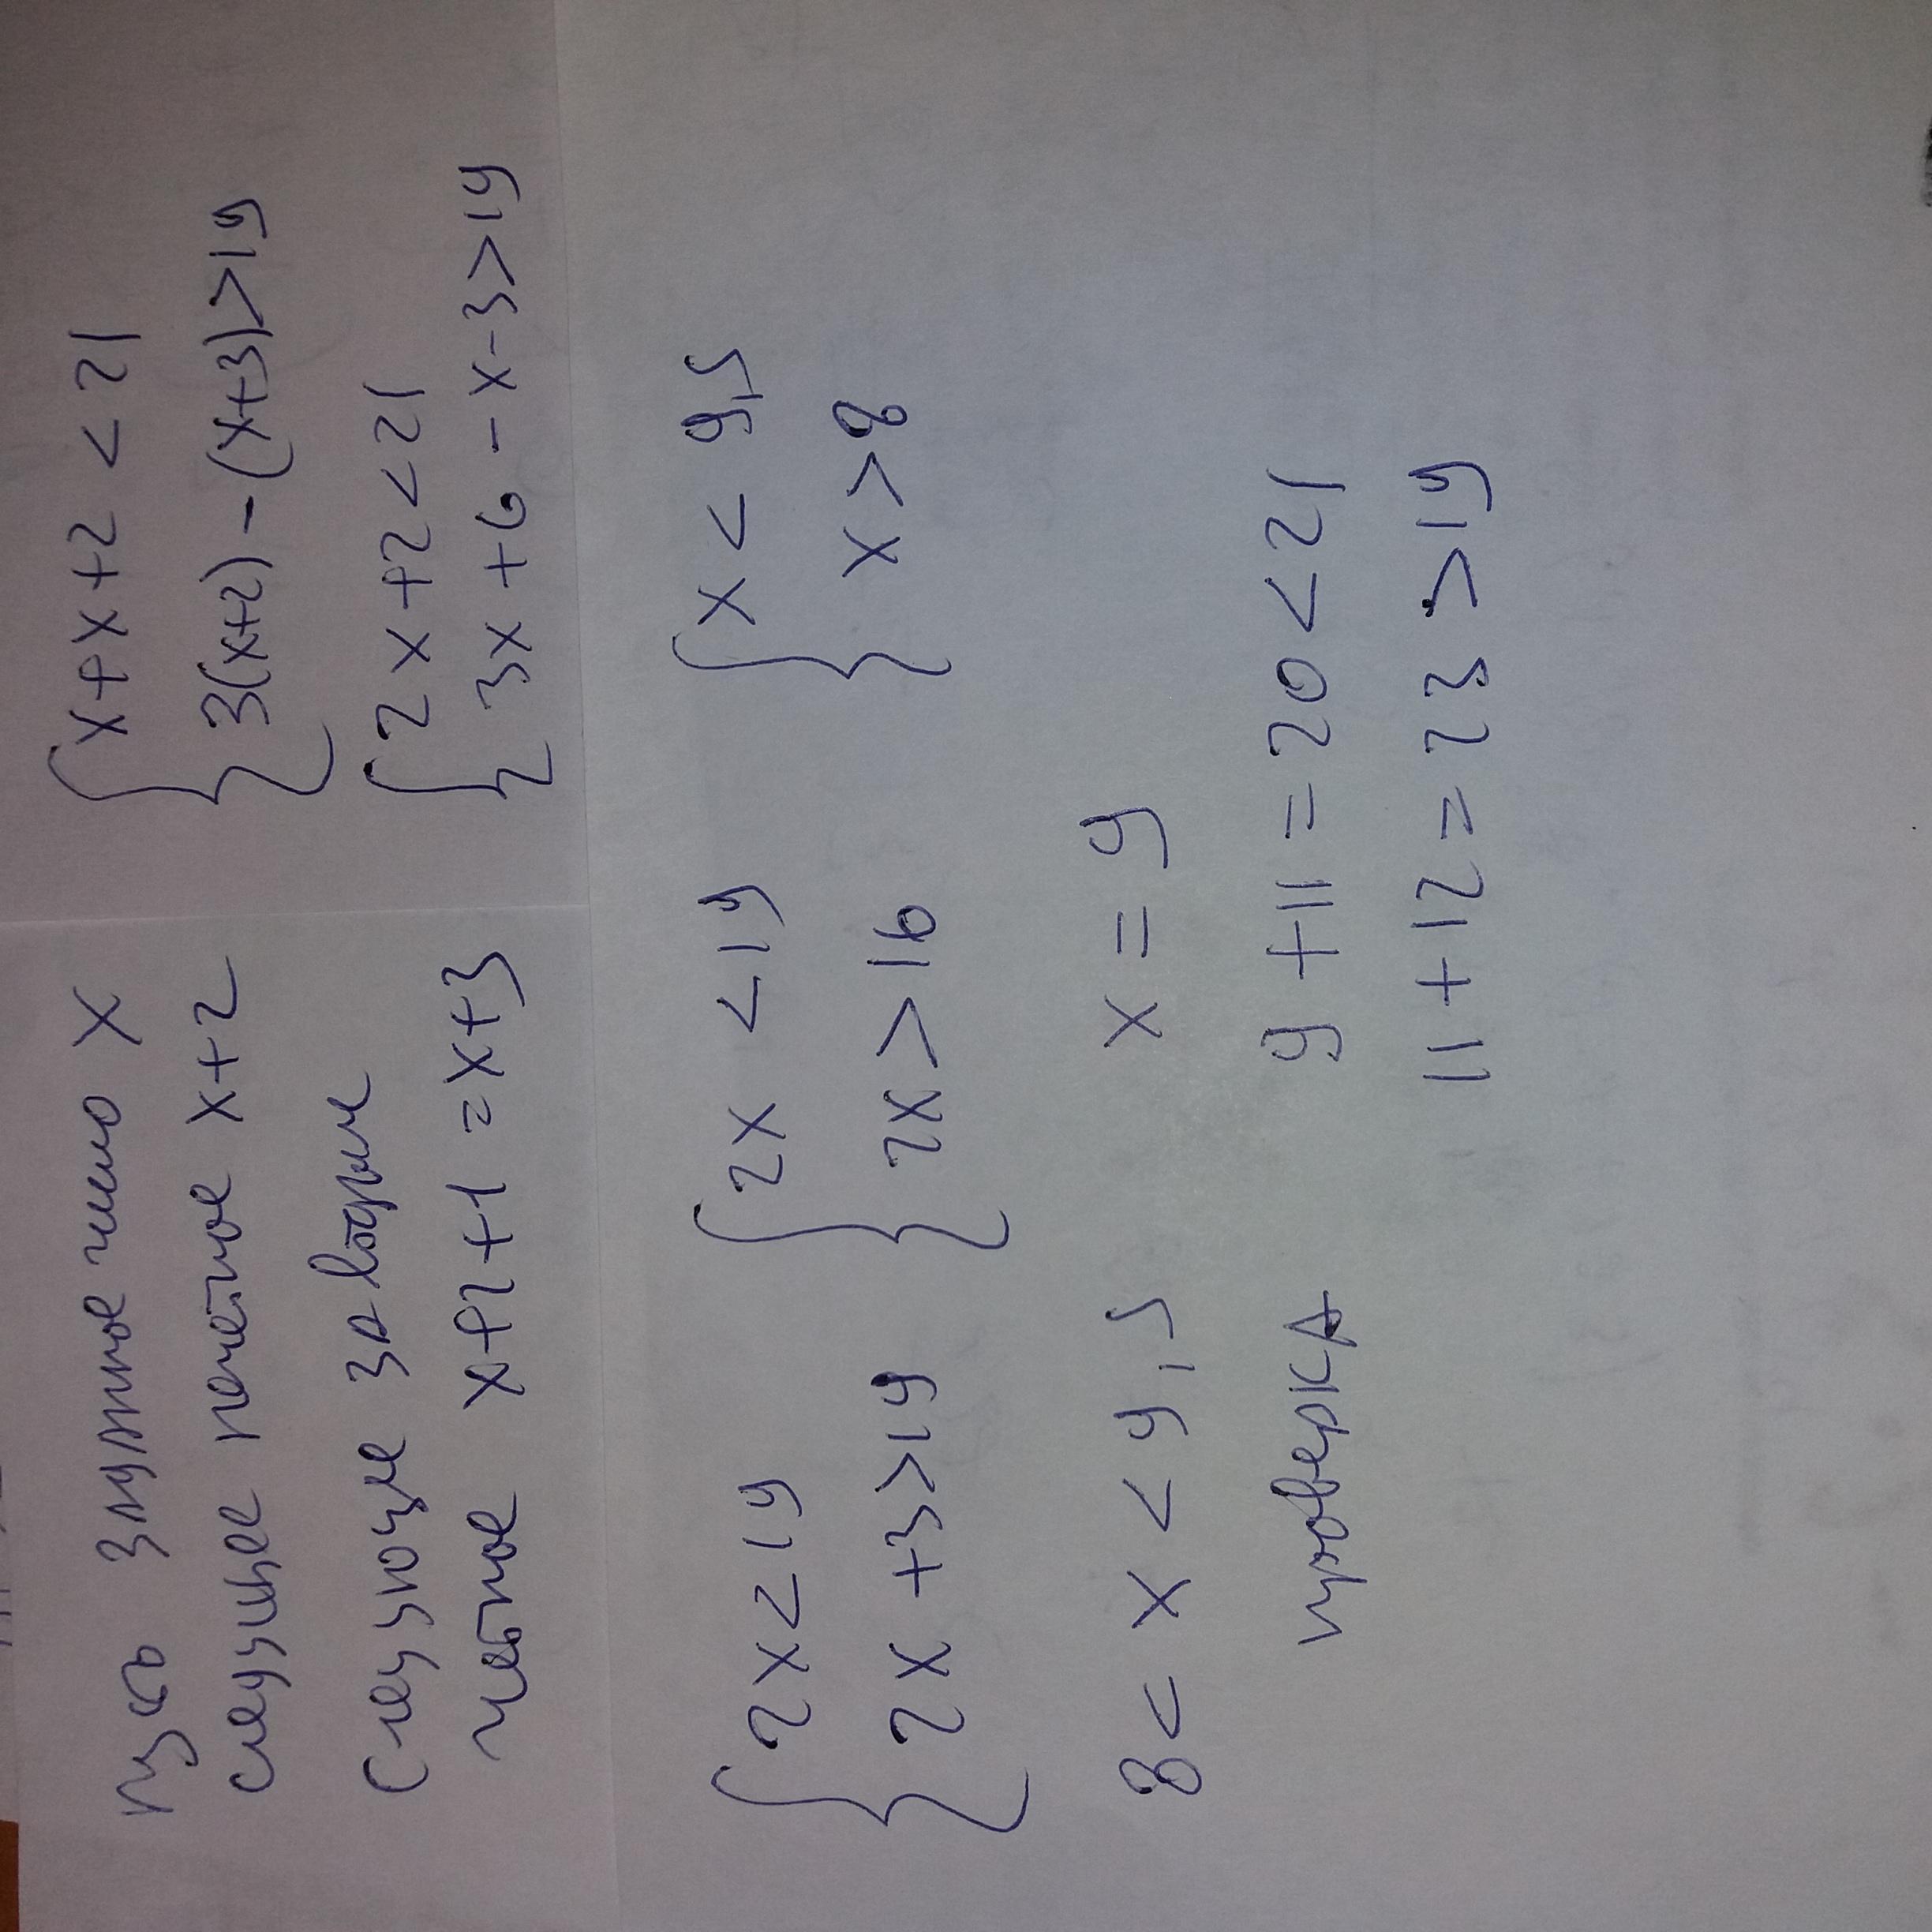 пусть задуманное число x
следущее нечетное x+2
следующее за вторым
четное x+2+1=x+3
x+x+2<21
3(x+2)-(x+3)>19
2x+2<21
3x+6-x-3>19
2x<19
2x+3>19
2x<19
2x>16
x<9,5
x>8
8<x<9,5
x=9
проверка
9+11=20<21
11+12=23>19